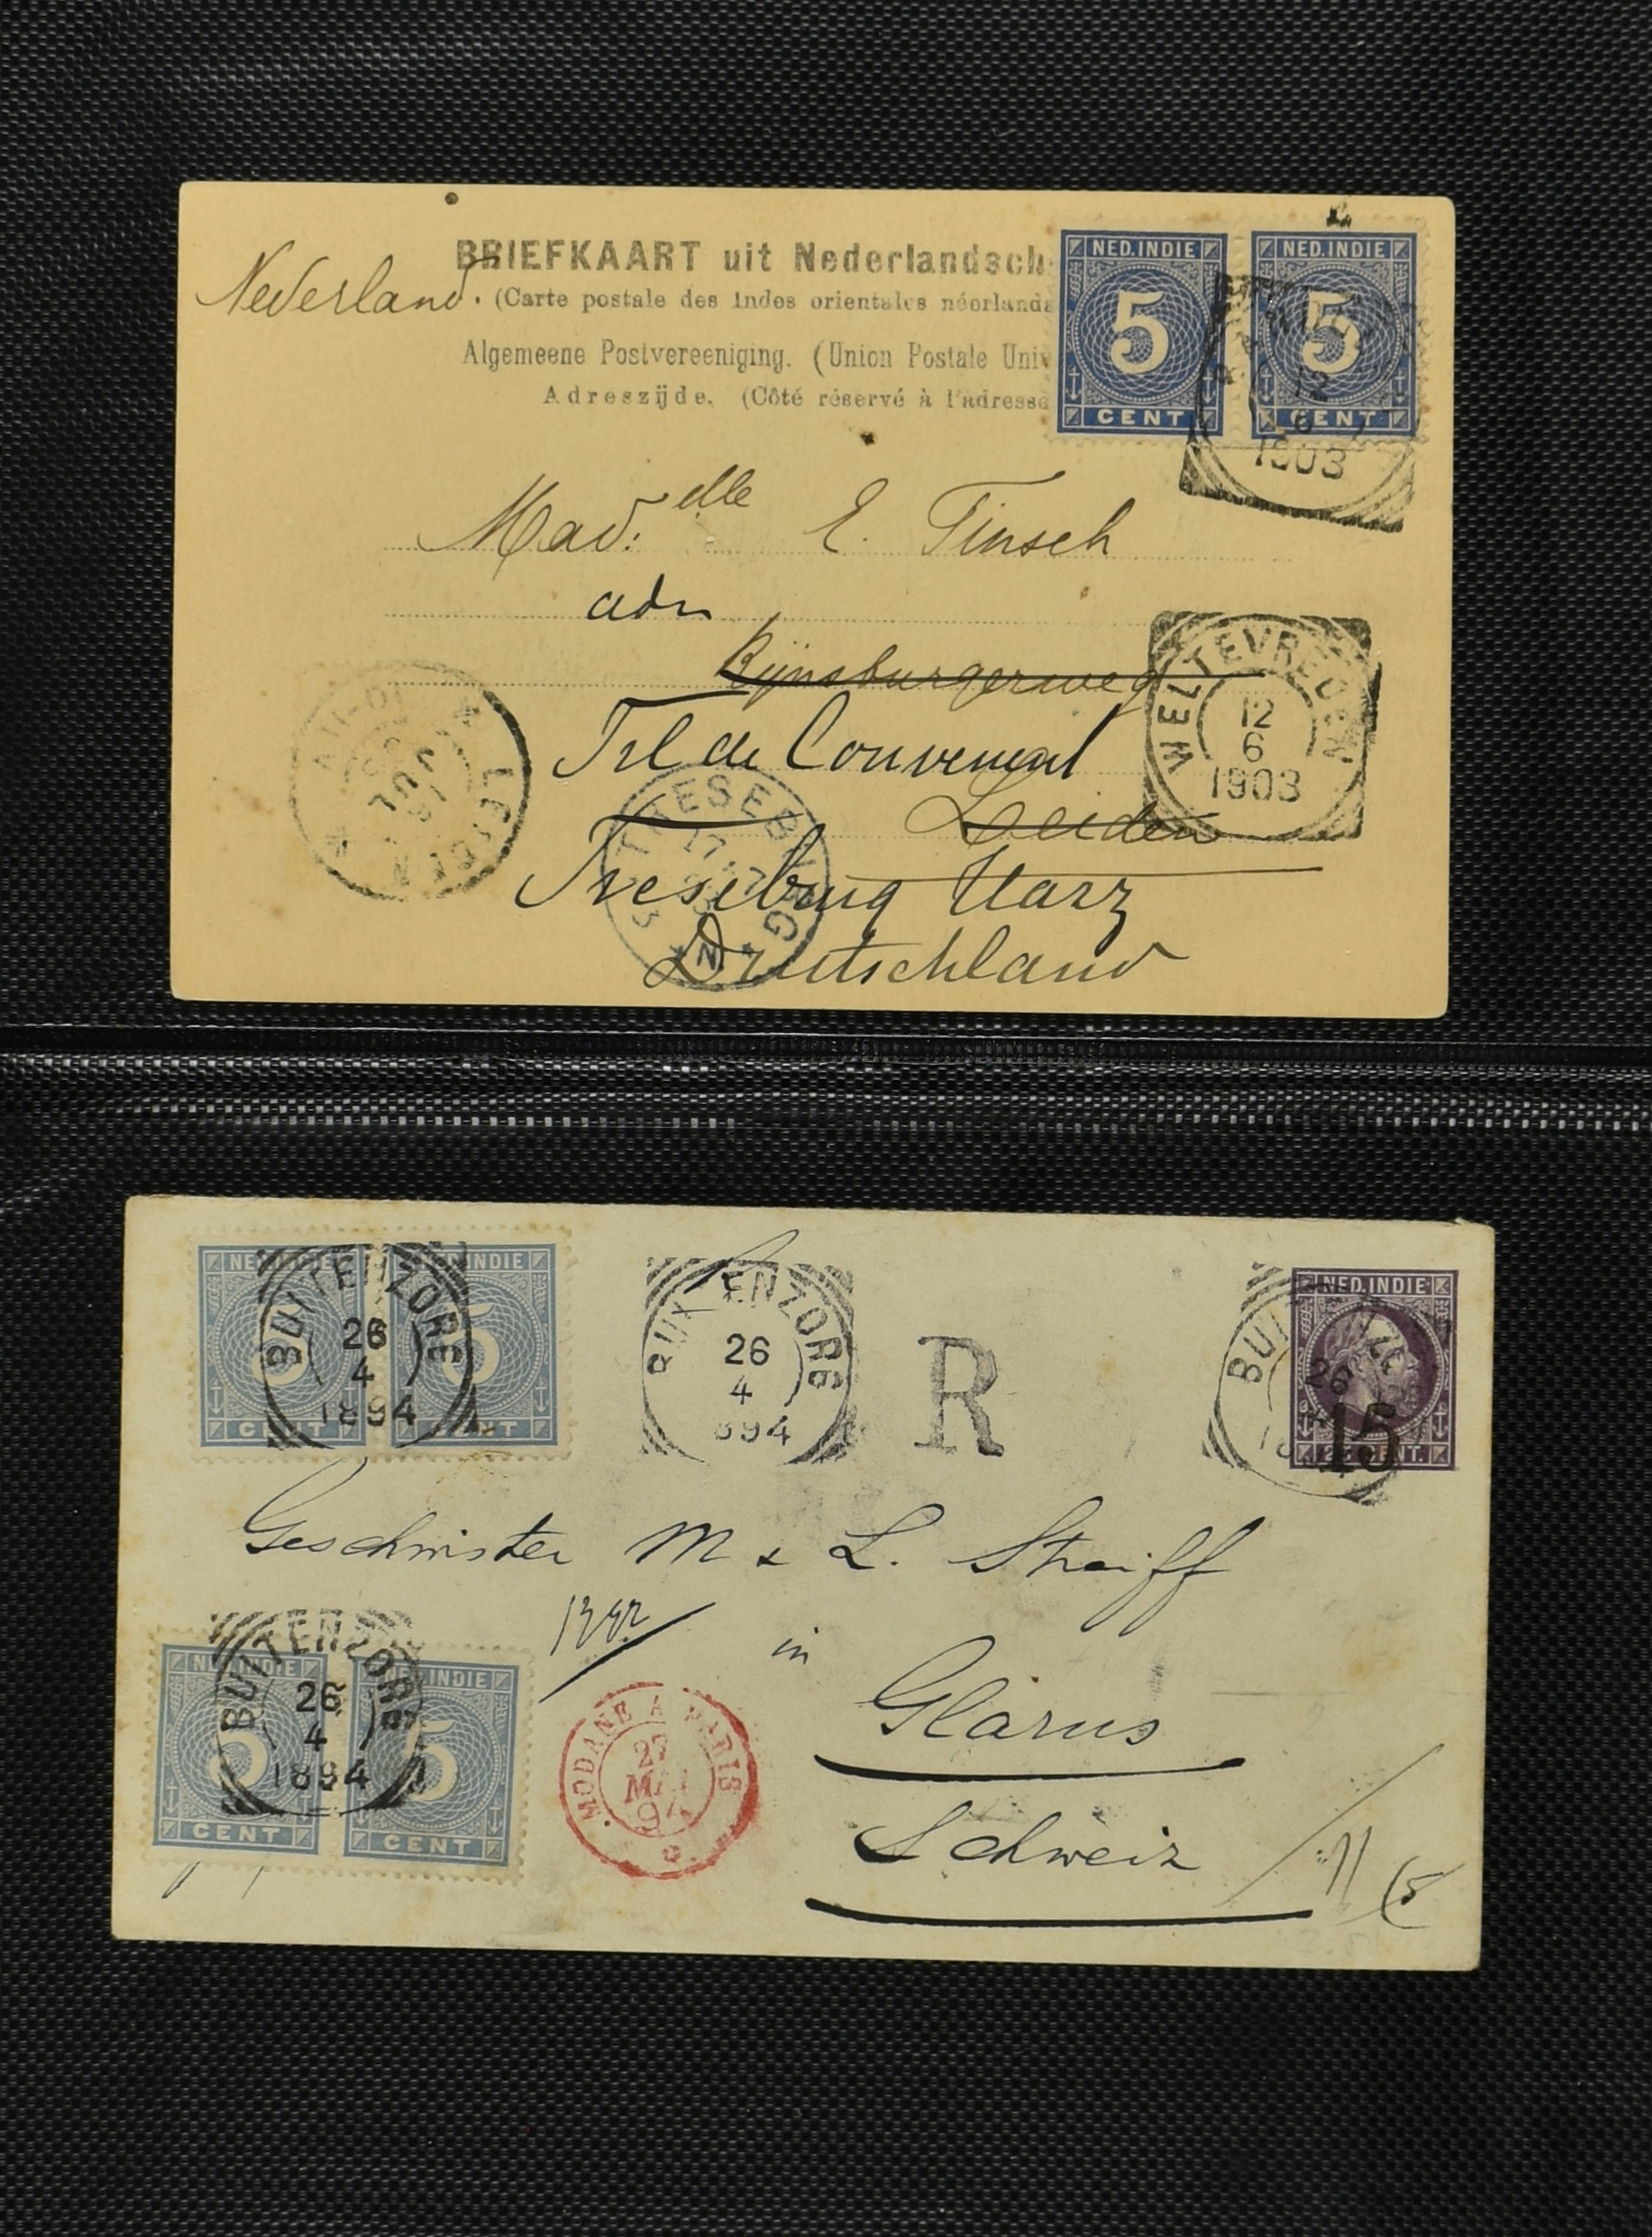 BRIEFKAART uit Nederlandsch
Nederland. (Carte postale des Indes orientales néerlanda
Algemeene Postvereeniging. (Union Postale Univ
Adreszijde. (Côté réservé à l'adresse
NED. INDIE
5
CENT
NED. INDIE
5
CENT
12
6
1903
Mad:elle E. Finsch
adr
Rijnsburgerweg
WELTEVREDEN
12
6
1903
Leiden
Treseburg Harz
Deutschland
LEIDEN
JUL
TRESEBURG
17
NED. INDIE
5
CENT
NED. INDIE
5
CENT
BUITENZORG
26
4
1894
BUITENZORG
26
4
894
R
NED. INDIE
15
25 CENT.
BUITENZORG
26
Geschwister M & L. Streiff
in
Glarus
Schweiz
NED. INDIE
5
CENT
NED. INDIE
5
CENT
BUITENZORG
26
4
1894
MODANE A PARIS
27
MAI
94